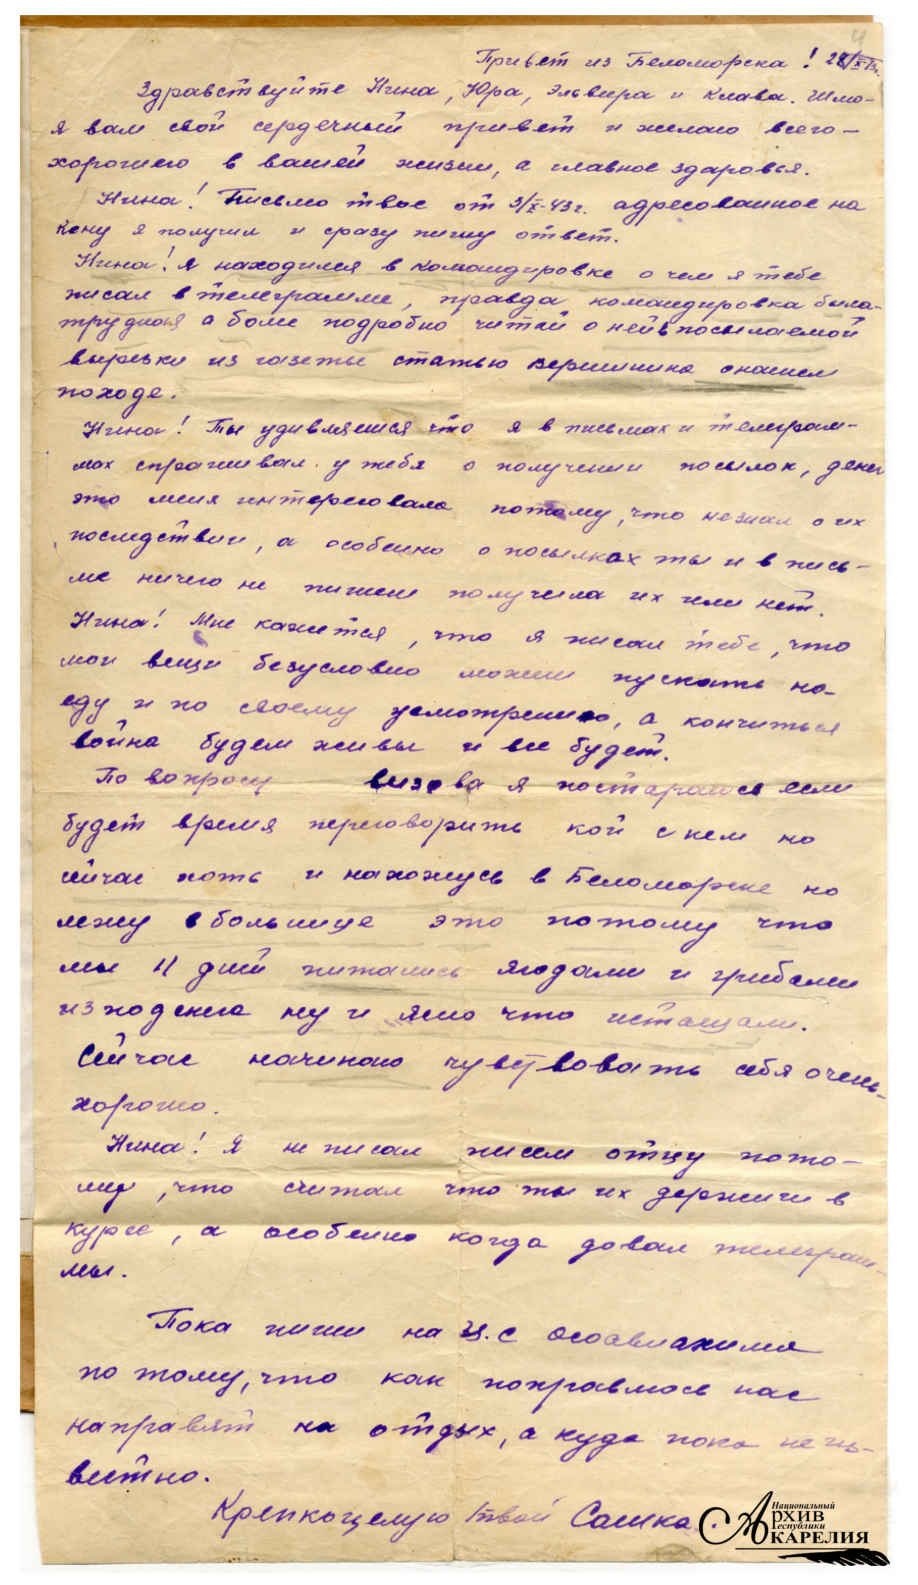 4
Привет из Беломорска! 28/X-43г.
Здравствуйте Нина, Юра, Эльвира и Клава. Шлю-
я вам свой сердечный привет и желаю всего-
хорошего в вашей жизни, а главное здоровья.
Нина! Письмо твое от 9/X-43г. адресованное на
Кену я получил и сразу пишу ответ.
Нина! Я находился в командировке о чем я тебе
писал в телеграмме, правда командировка была-
трудная а более подробно читай о ней в посылаемой
вырезки из газеты статью Вершинина о нашем
походе.
Нина! Ты удивляешся что я в письмах и телеграм-
мах спрашивал у тебя о получении посылок, денег
это меня интересовало потому, что незнал о их
последствии, а особенно о посылках ты и в пись-
ме ничего не пишеш получила их или нет.
Нина! Мне кажится, что я писал тебе, что
мои вещи безусловно можеш пускать на-
еду и по своему усмотрению, а кончиться
война будем живы и все будет.
По вопросу вызова я постараюся если
будет время переговорить кой с кем но
сейчас хоть и нахожусь в Беломорске но
лежу в больнице это потому что
мы 11 дней питались ягодами и грибами
из ходенья ну и ясно что истащали.
Сейчас начинаю чувствовать себя очень-
хорошо.
Нина! Я не писал писем отцу пото-
му, что считал что ты их держиш в
курсе, а особенно когда довал телеграм-
мы.
Пока пиши на Ц.С Осоавиахима
по тому, что как поправлюсь нас
направят на отдых, а куда пока не из-
вестно.
Крепко целую твой Сашка.
Национальный
Архив
Республики
Карелия